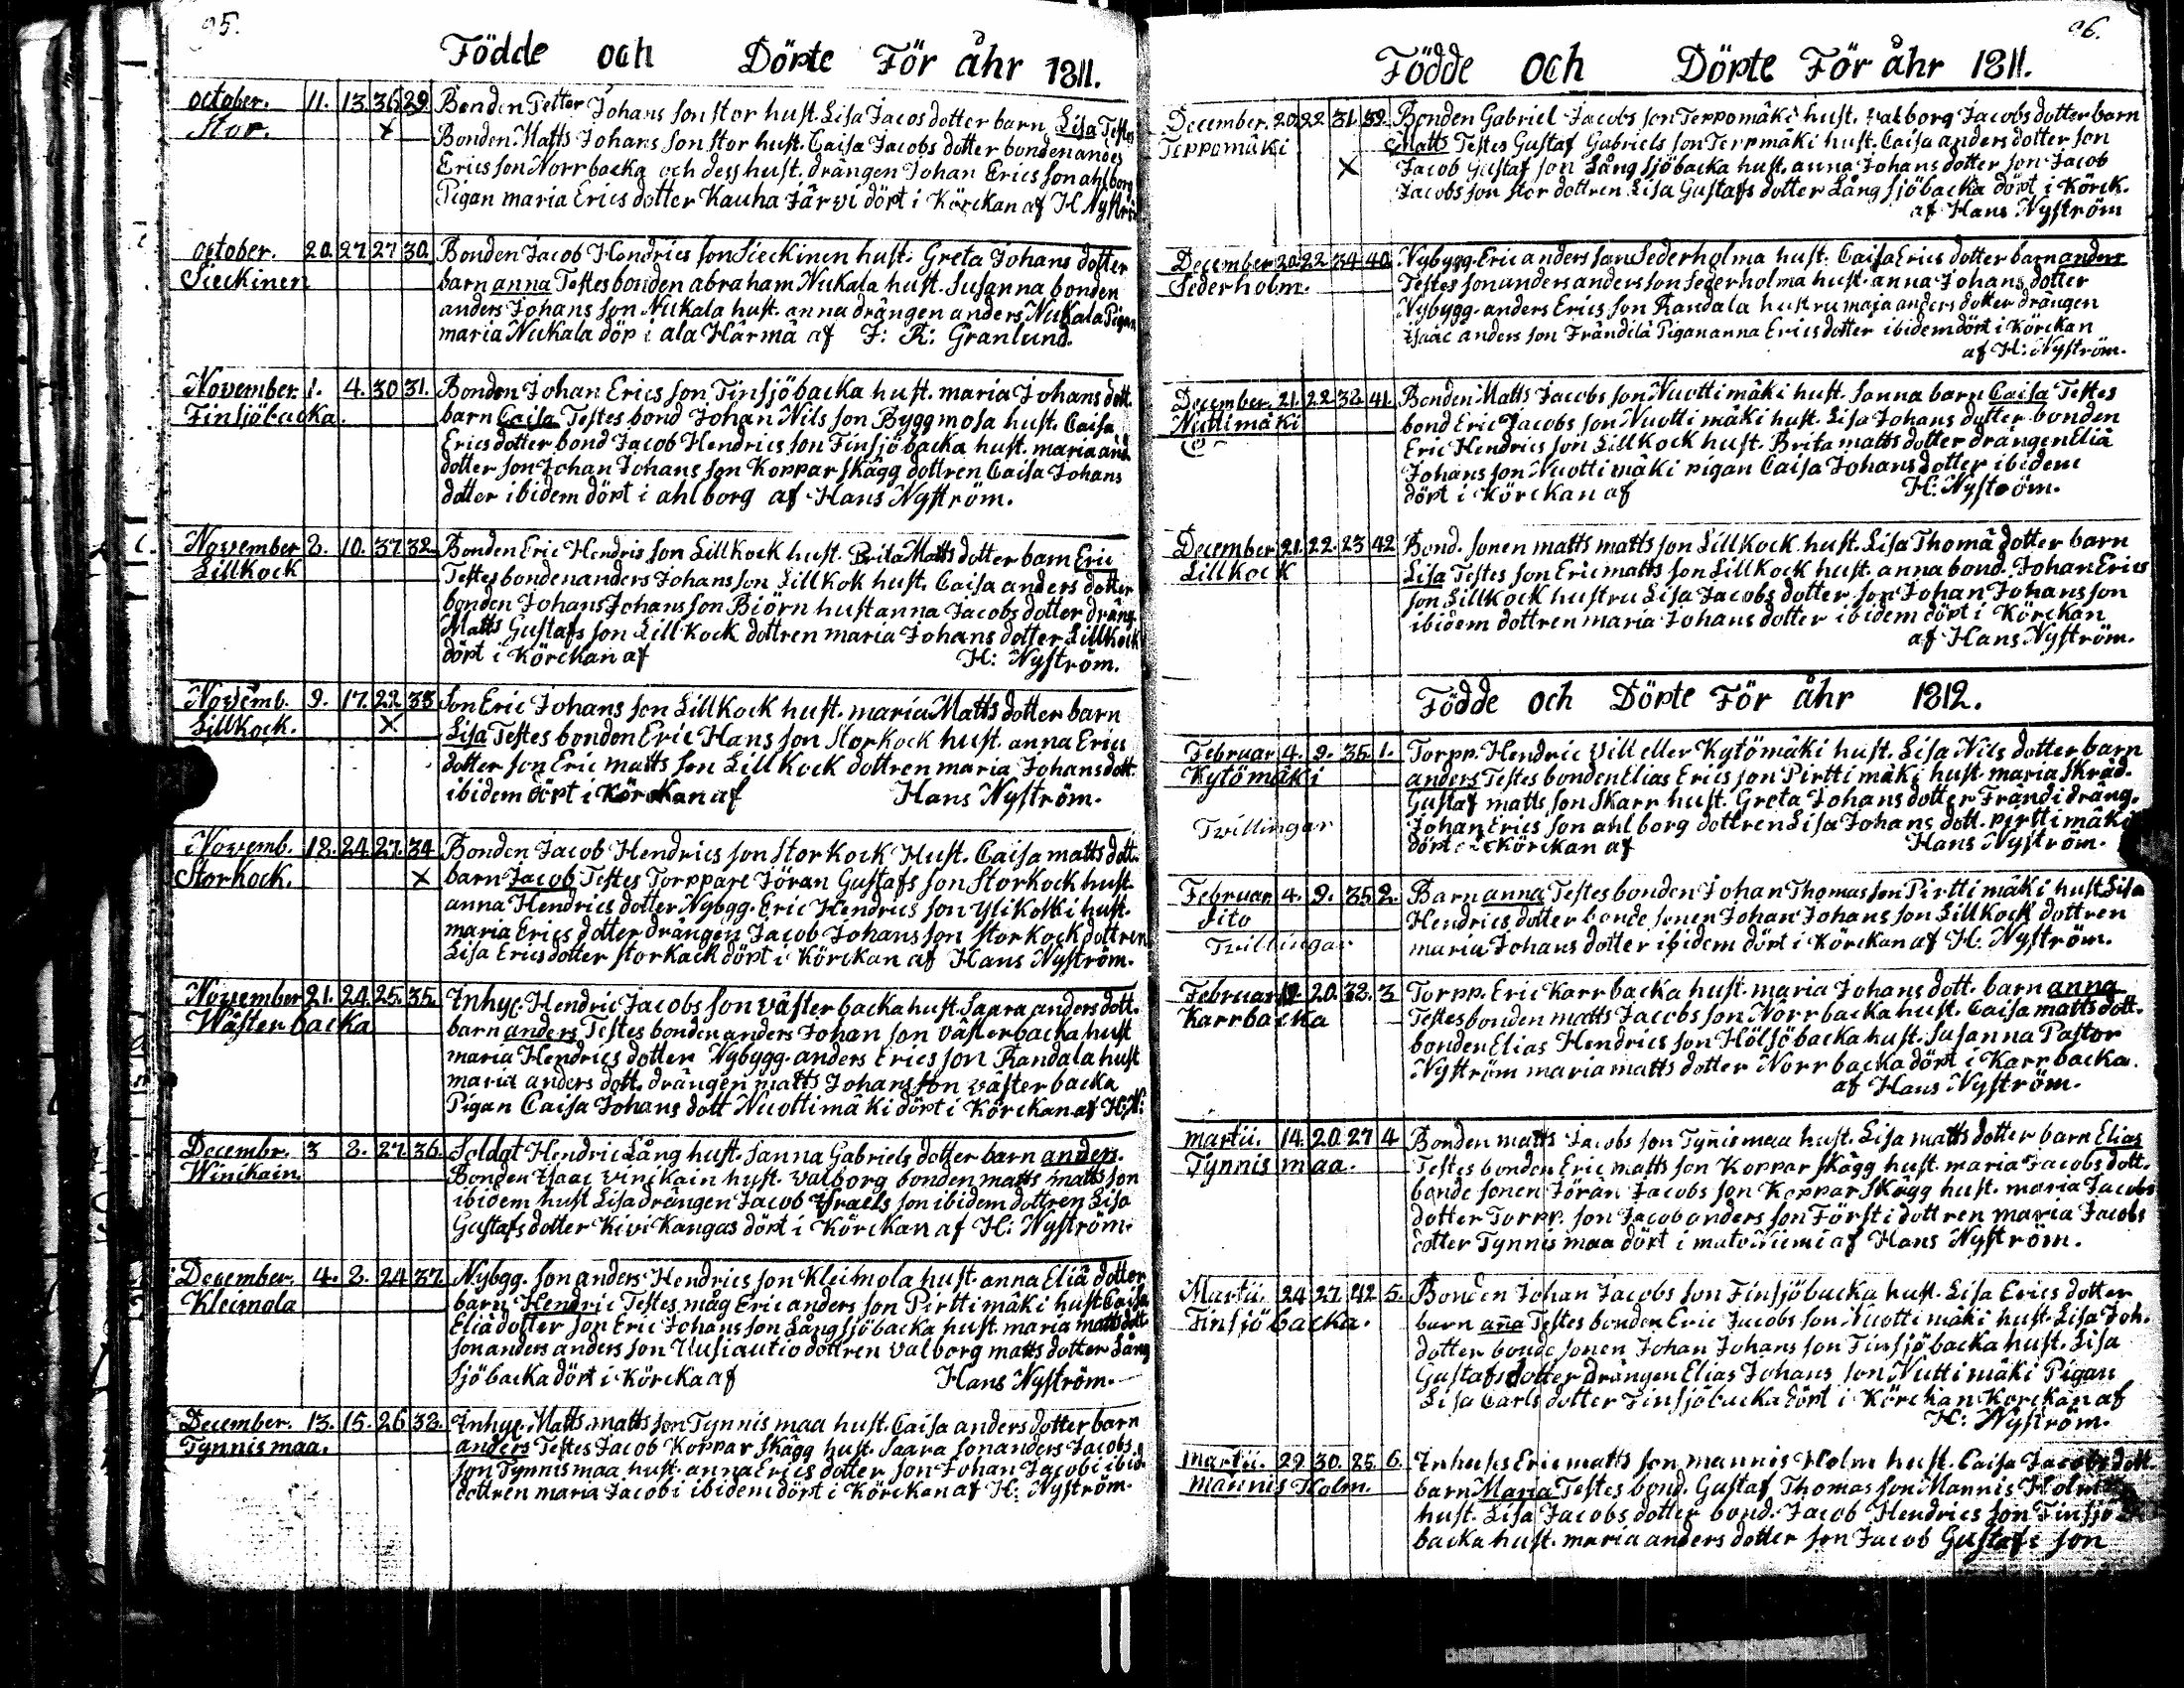 95.
Födde och Döpte För åhr 1811.
october. 11. 13. 36 29. Bonden Petter Johans son stor hust. Lisa Jacos dotter barn Lisa Testes
Stor. x Bonden Matts Johans son stor hust. Caisa Jacobs dotter bonden andes
Erics son Norrbacka och dess hust. drängen Johan Erics son ahlborg
Pigan maria Erics dotter Kauha Järvi döpt i Körckan af H Nyström
october. 20. 27. 27 30. Bonden Jacob Hendrics son Sieckinen hust. Greta Johans dotter
Sieckinen barn anna Testes bonden abraham Nukala hust. Susanna bonden
anders Johans son Nukala hust. anna drängen anders Nukala Pigan
maria Nukala döp i ala Härmä af J: R: Granlund.
November 1. 4. 30 31. Bonden Johan Erics son Finsjöbacka hust. maria Johans dott.
Finsjöbacka. barn Caisa Testes bond Johan Nils son Byggmosa hust. Caisa
Erics dotter bond Jacob Hendrics son Finsjöbacka hust. maria and
dotter son Johan Johans son Koppar skägg dottren Caisa Johans
dotter ibidem döpt i ahlborg af Hans Nyström.
November 8. 10. 37 32. Bonden Eric Hendris son Lillkock hust. Brita Matts dotter barn Eric
Lillkock Testes bonden anders Johans son Lillkok hust. Caisa anders dotter
bonden Johans Johans son Biörn hust anna Jacobs dotter dräng.
Matts Gustafs son Lill Kock dottren maria Johans dotter Lillkock
döpt i Körckan af H: Nyström.
Novemb. 9. 17. 22 33 Son Eric Johans son Lillkock hust. maria Matts dotter barn
Lillkock. X Lisa Testes bonden Eric Hans son Storkock hust. anna Erics
dotter son Eric matts son Lill Kock dottren maria Johans dott.
ibidem döpt i Körckan af Hans Nyström.
Novemb. 18. 24. 27. 34 Bonden Jacob Hendrics son Storkock Hust. Caisa matts dott.
Storkock. x barn Jacob Testes Torppare Jöran Gustafs son Storkock hust.
anna Hendrics dotter Nybgg. Eric Hendrics son Ylikoski hust.
maria Erics dotter drängen Jacob Johans son Storkock dottren
Lisa Erics dotter storkack döpt i Körckan af Hans Nyström.
November 21. 24. 25. 35. Inhyc. Hendric Jacobs son väster backa hust. Saara anders dott.
Wästerbacka barn anders Testes bonden anders Johan son vasterbacka hust
maria Hendrics dotter Nybygg. anders Erics son Randala hust
maria anders dott. drängen matts Johans son väster backa
Pigan Caisa Johans dott Nuottimäki döpt i Körckan af H:N:
Decembr. 3 8. 27. 36. Soldat Hendric Lång hust. Sanna Gabriels dotter barn anders.
Winikain. Bonden Isaac vinikain hust. Valborg bonden matts matts son
ibidem hust Lisa drängen Jacob Israels son ibidem dottren Lisa
Gustafs dotter Kivi Kangas döpt i Körckan af H: Nyström.
December. 4. 8. 24 37. Nybgg. son anders Hendrics son Kleimola hust. anna Eliä dotter
Kleimola barn Hendric Testes måg Eric anders son Pirttimäki hust Caisa
Eliä dotter son Eric Johans son Långsjöbacka hust. maria matts dott.
son anders anders son Uusiautio dottren Valborg matts dotter Lång
sjöbacka döpt i Körcka af Hans Nyström.
December. 13. 15. 26 38. Inhyc. Matts matts son Tynnismaa hust. Caisa anders dotter barn
Tynnismaa. anders Testes Jacob Koppar skägg hust. Saara son anders Jacobs
son Tynnismaa hust. anna Erics dotter son Johan Jacobi ibid.
dottren maria Jacobi ibidem döpt i Körckan af H: Nyström.
96.
Födde och Döpte För åhr 1811.
December. 20. 22 31. 39. Bonden Gabriel Jacobs son Teppomäki hust. Valborg Jacobs dotter barn
Teppomäki Matts Testes Gustaf Gabriels son Teppmäki hust. Caisa anders dotter son
X Jacob Gustaf son Långsjöbacka hust. anna Johans dotter son Jacob
Jacobs son stor dottren Lisa Gustafs dotter Långsjöbacka döpt i Körck.
af Hans Nyström
December 20. 22 34 40. Nybygg. Eric anders son Sederholma hust. Caisa Erics dotter barn anders
Sederholm. Testes son anders anders son Sederholma hust. anna Johans dotter
Nybygg. anders Erics son Randala hustru maja anders dotter drängen
Isaac anders son Frändilä Pigan anna Erics dotter ibidem döpt i Körckan
af H: Nyström.
December. 21. 22. 38. 41. Bonden Matts Jacobs son Nuottimäki hust. Sanna barn Caisa Testes
Nuttimäki bond Eric Jacobs son Nuottimäki hust. Lisa Johans dotter bonden
Eric Hendrics son Lillkock hust. Brita matts dotter drängen Eliä
Johans son Nuottimäki pigan Caisa Johans dotter ibidem
döpt i Körckan af H: Nyström.
December 21. 22. 23 42 Bond. sonen matts matts son Lillkock hust. Lisa Thomä dotter barn
Lillkock Lisa Testes son Eric matts son Lillkock hust. anna bond. Johan Erics
son Lillkock hustru Lisa Jacobs dotter son Johan Johans son
ibidem dottren maria Johans dotter ibidem döpt i Körckan
af Hans Nyström.
Födde och Döpte För åhr 1812.
Februar 4. 9. 35. 1. Torpp. Hendric Vill eller Kytömäki hust. Lisa Nils dotter barn
Kytömäki anders Testes bonden Elias Erics son Pirttimäki hust. maria Skräd.
Gustaf matts son Skarr hust. Greta Johans dotter Frändi dräng.
Tvillingar Johan Erics son ahlborg dottren Lisa Johans dott. pirttimäki
döpt i Körckan af Hans Nyström.
Februar 4. 9. 35 2. Barn anna Testes bonden Johan Thomas son Pirttimäki hust Lisa
dito Hendrics dotter bonde sonen Johan Johans son Lillkock dottren
Tvillingar maria Johans dotter ibidem döpt i Körckan af H: Nyström.
Februar 19. 20. 38. 3 Torpp. Eric Karrbacka hust. maria Johans dott. barn anna
Karrbacka Testes bonden matts Jacobs son Norrbacka hust. Caisa matts dott.
bonden Elias Hendrics son Hölsöbacka hust. Susanna Pastor
Nyström maria matts dotter Norrbacka döpt i Karrbacka.
af Hans Nyström.
Martii. 14. 20. 27 4 Bonden matts Jacobs son Tynismaa hust. Lisa matts dotter barn Elias
Tynnismaa. Testes bonden Eric matts son Kopparskägg hust. maria Jacobs dott.
bonde sonen Jöran Jacobs son Koppar Skägg hust. maria Jacobs
dotter Torpp. son Jacob anders son Försti dottren maria Jacobs
dotter Tynnismaa döpt i matoniemi af Hans Nyström.
Martii. 24 27. 42 5. Bonden Johan Jacobs son Finsjöbacka hust. Lisa Erics dotter
Finsjöbacka. barn aña Testes bonden Eric Jacobs son Nuottimäki hust. Lisa Joh.
dotter bonde sonen Johan Johans son Finsjöbacka hust. Lisa
Gustafs dotter drängen Elias Johans son Nuttimäki Pigan
Lisa Carls dotter Finsjöbacka döpt i Körckan Korckan af
H: Nyström.
Martii. 29 30. 25. 6. Inhuses Eric matts son mannis Holm hust. Caisa Jacobs dott.
Mannis Holm. barn Maria Testes bond. Gustaf Thomas son Mannis Holm
hust. Lisa Jacobs dotter bond. Jacob Hendrics son Finsjö
backa hust. maria anders dotter son Jacob Gustafs son